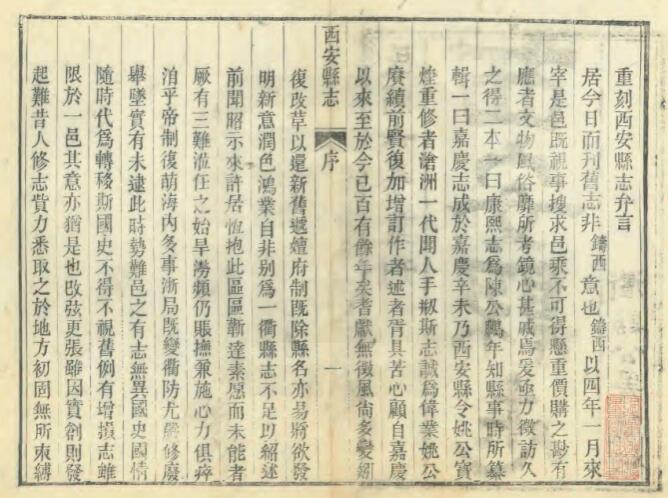 重刻西安縣志弁言
居今日而刊舊志非鑄西意也鑄西以四年一月來
宰是邑既視事搜求邑乘不可得懸重價購之尠有
應者文物風俗靡所考鏡心甚戚焉爰亟力徵訪久
之得二本一曰康熙志爲陳公鵬年知縣事時所纂
輯一曰嘉慶志成於嘉慶辛未乃西安縣令姚公寶
煃重修者滄洲一代聞人手刱斯志誠爲偉業姚公
賡續前賢復加增訂作者述者胥具苦心顧自嘉慶
以來至於今已百有餘年矣耆獻無徵風尙多變
西安縣志
序
一
復改草以還新舊遞嬗府制既除縣名亦易將欲發
明新意潤色鴻業自非别爲一衢縣志不足以紹述
前聞昭示來許居恆抱此區區蘄達素愿而未能者
厥有三難涖任之始旱澇頻仍賑撫兼施心力俱瘁
洎乎帝制復萌海内多事浙局既變衢防尤嚴修廢
舉墜實有未逮此時勢難邑之有志無異國史國情
隨時代爲轉移斯國史不得不視舊例有增損志雖
限於一邑其意亦猶是也改弦更張雖因實創則發
起難昔人修志貲力悉取之於地方初固無所朿縛